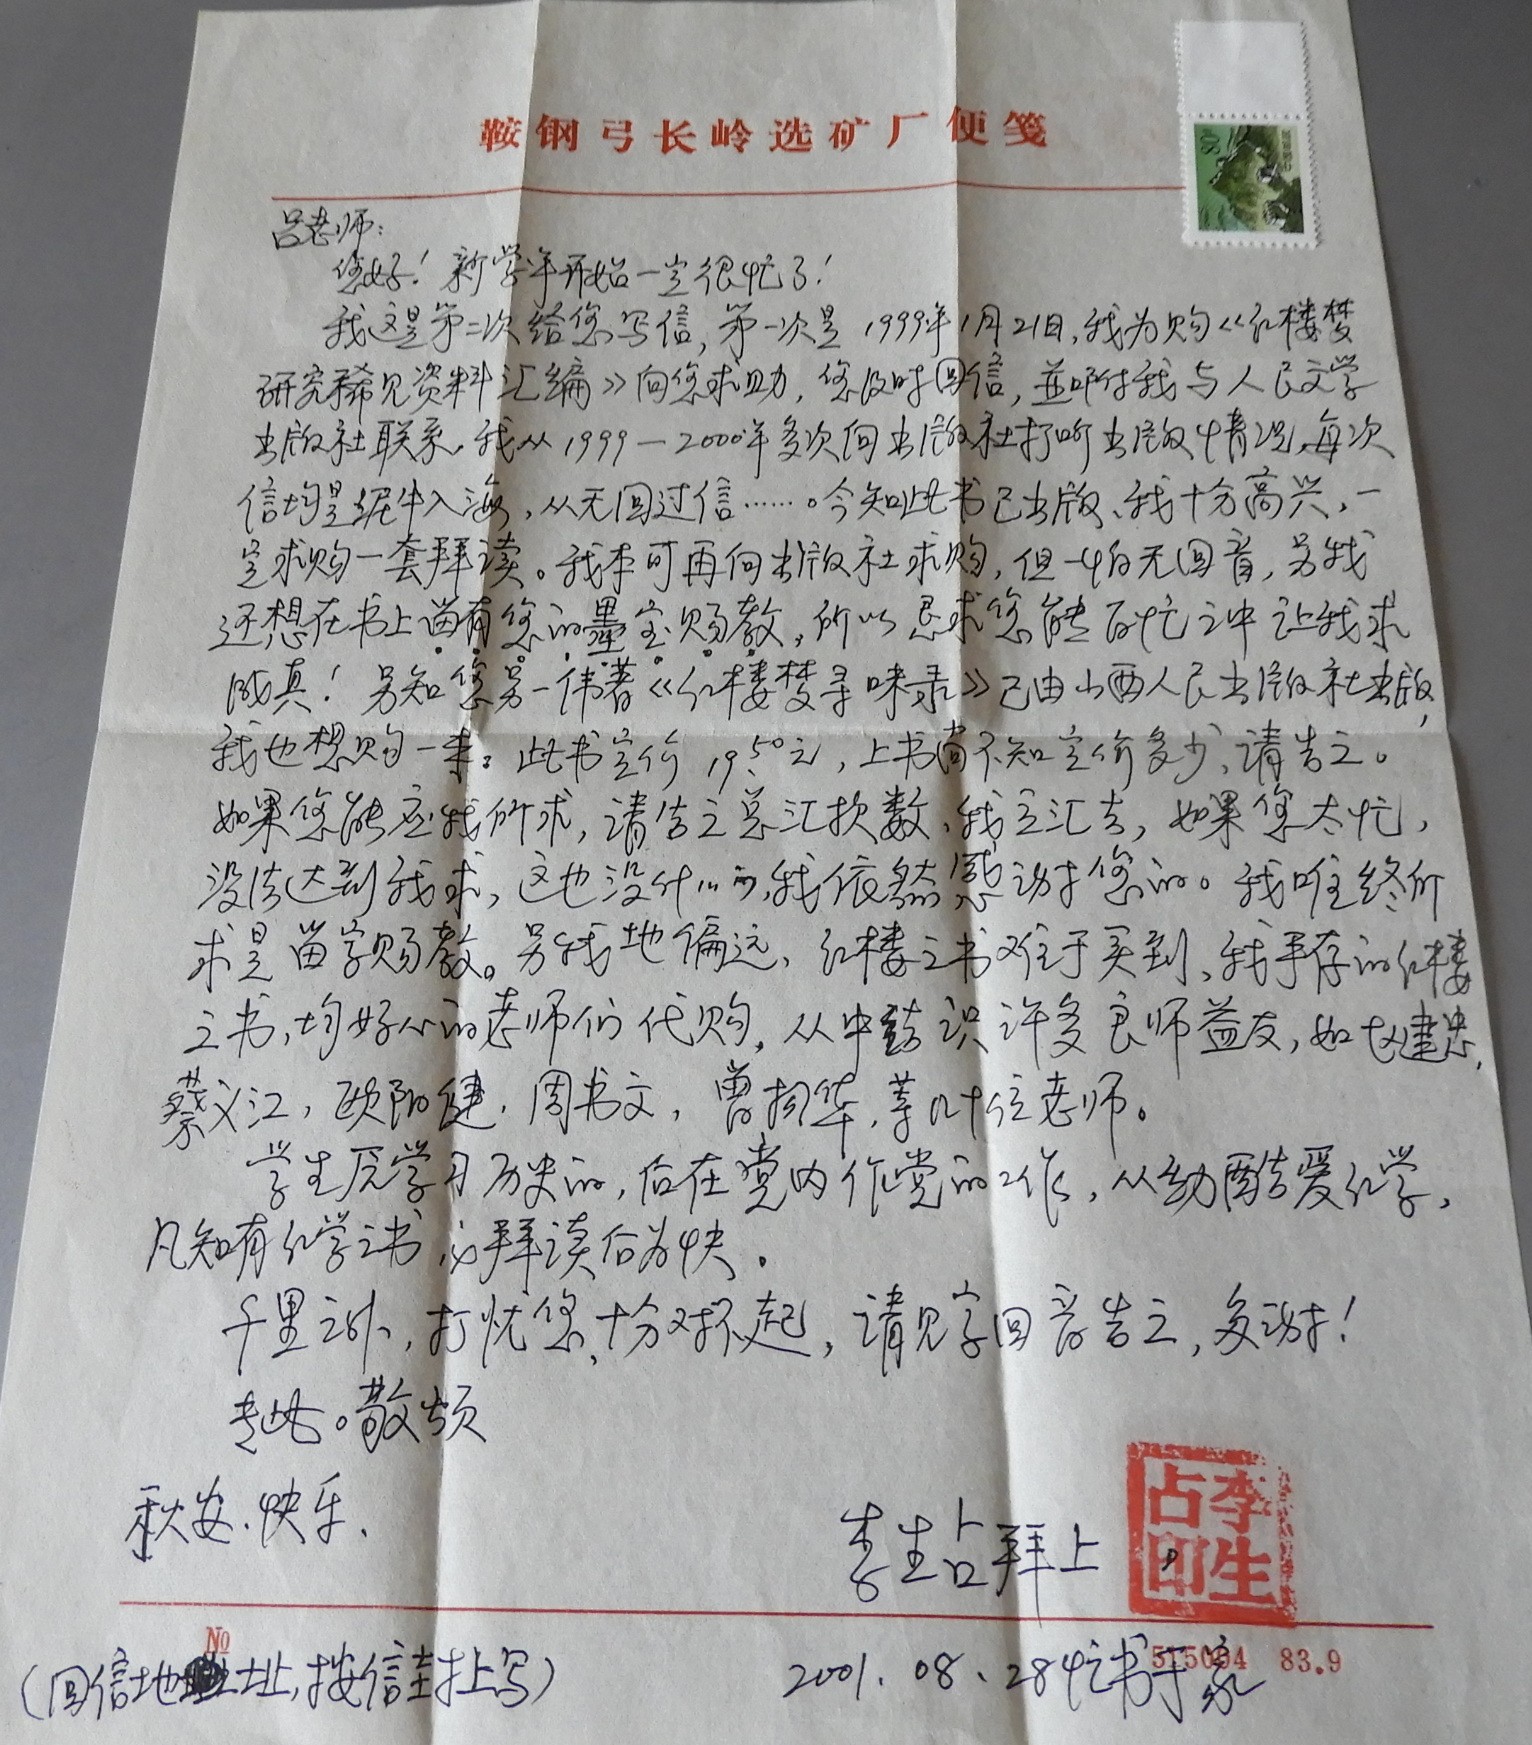 鞍钢弓长岭选矿厂便笺
80
吕老师:
您好！新学年开始一定很忙了！
我这是第二次给您写信，第一次是1999年1月21日，我为购《红楼梦
研究稀见资料汇编》向您求助，您及时回信，並吩付我与人民文学
出版社联系。我从1999—2000年多次向出版社打听出版情况，每次
信均是泥牛入海，从无回过信……。今知此书已出版、我十分高兴，一
定求购一套拜读。我本可再向出版社求购，但一怕无回音，另我
还想在书上留有您的墨宝赐教，所以恳求您能百忙之中让我求
成真！另知您另一伟著《红楼梦寻味录》已由山西人民出版社出版，
我也想购一本。此书定价19.50元，上书尚不知定价多少、请告之。
如果您能应我所求，请告之总汇款数、我立汇去，如果您太忙，
没法达到我求，这也没什么的，我依然感谢您的。我唯终所
求是留字赐教。另我地偏远、红楼之书难于买到、我手存的红楼
之书，均好心的老师们代购，从中结识许多良师益友，如赵建忠、
蔡义江，欧阳健、周书文，曾扬华，等几十位老师。
学生原学习历史的，后在党内作党的工作，从幼酷爱红学，
凡知有红学之书，必拜读后为快。
千里之外，打忧您，十分对不起，请见字回音告之，多谢！
专此。敬颂
秋安、快乐、
李生占拜上
李生占印
№
515004 83.9
(回信地址，按信封上写)
2001.08、28忙书于家